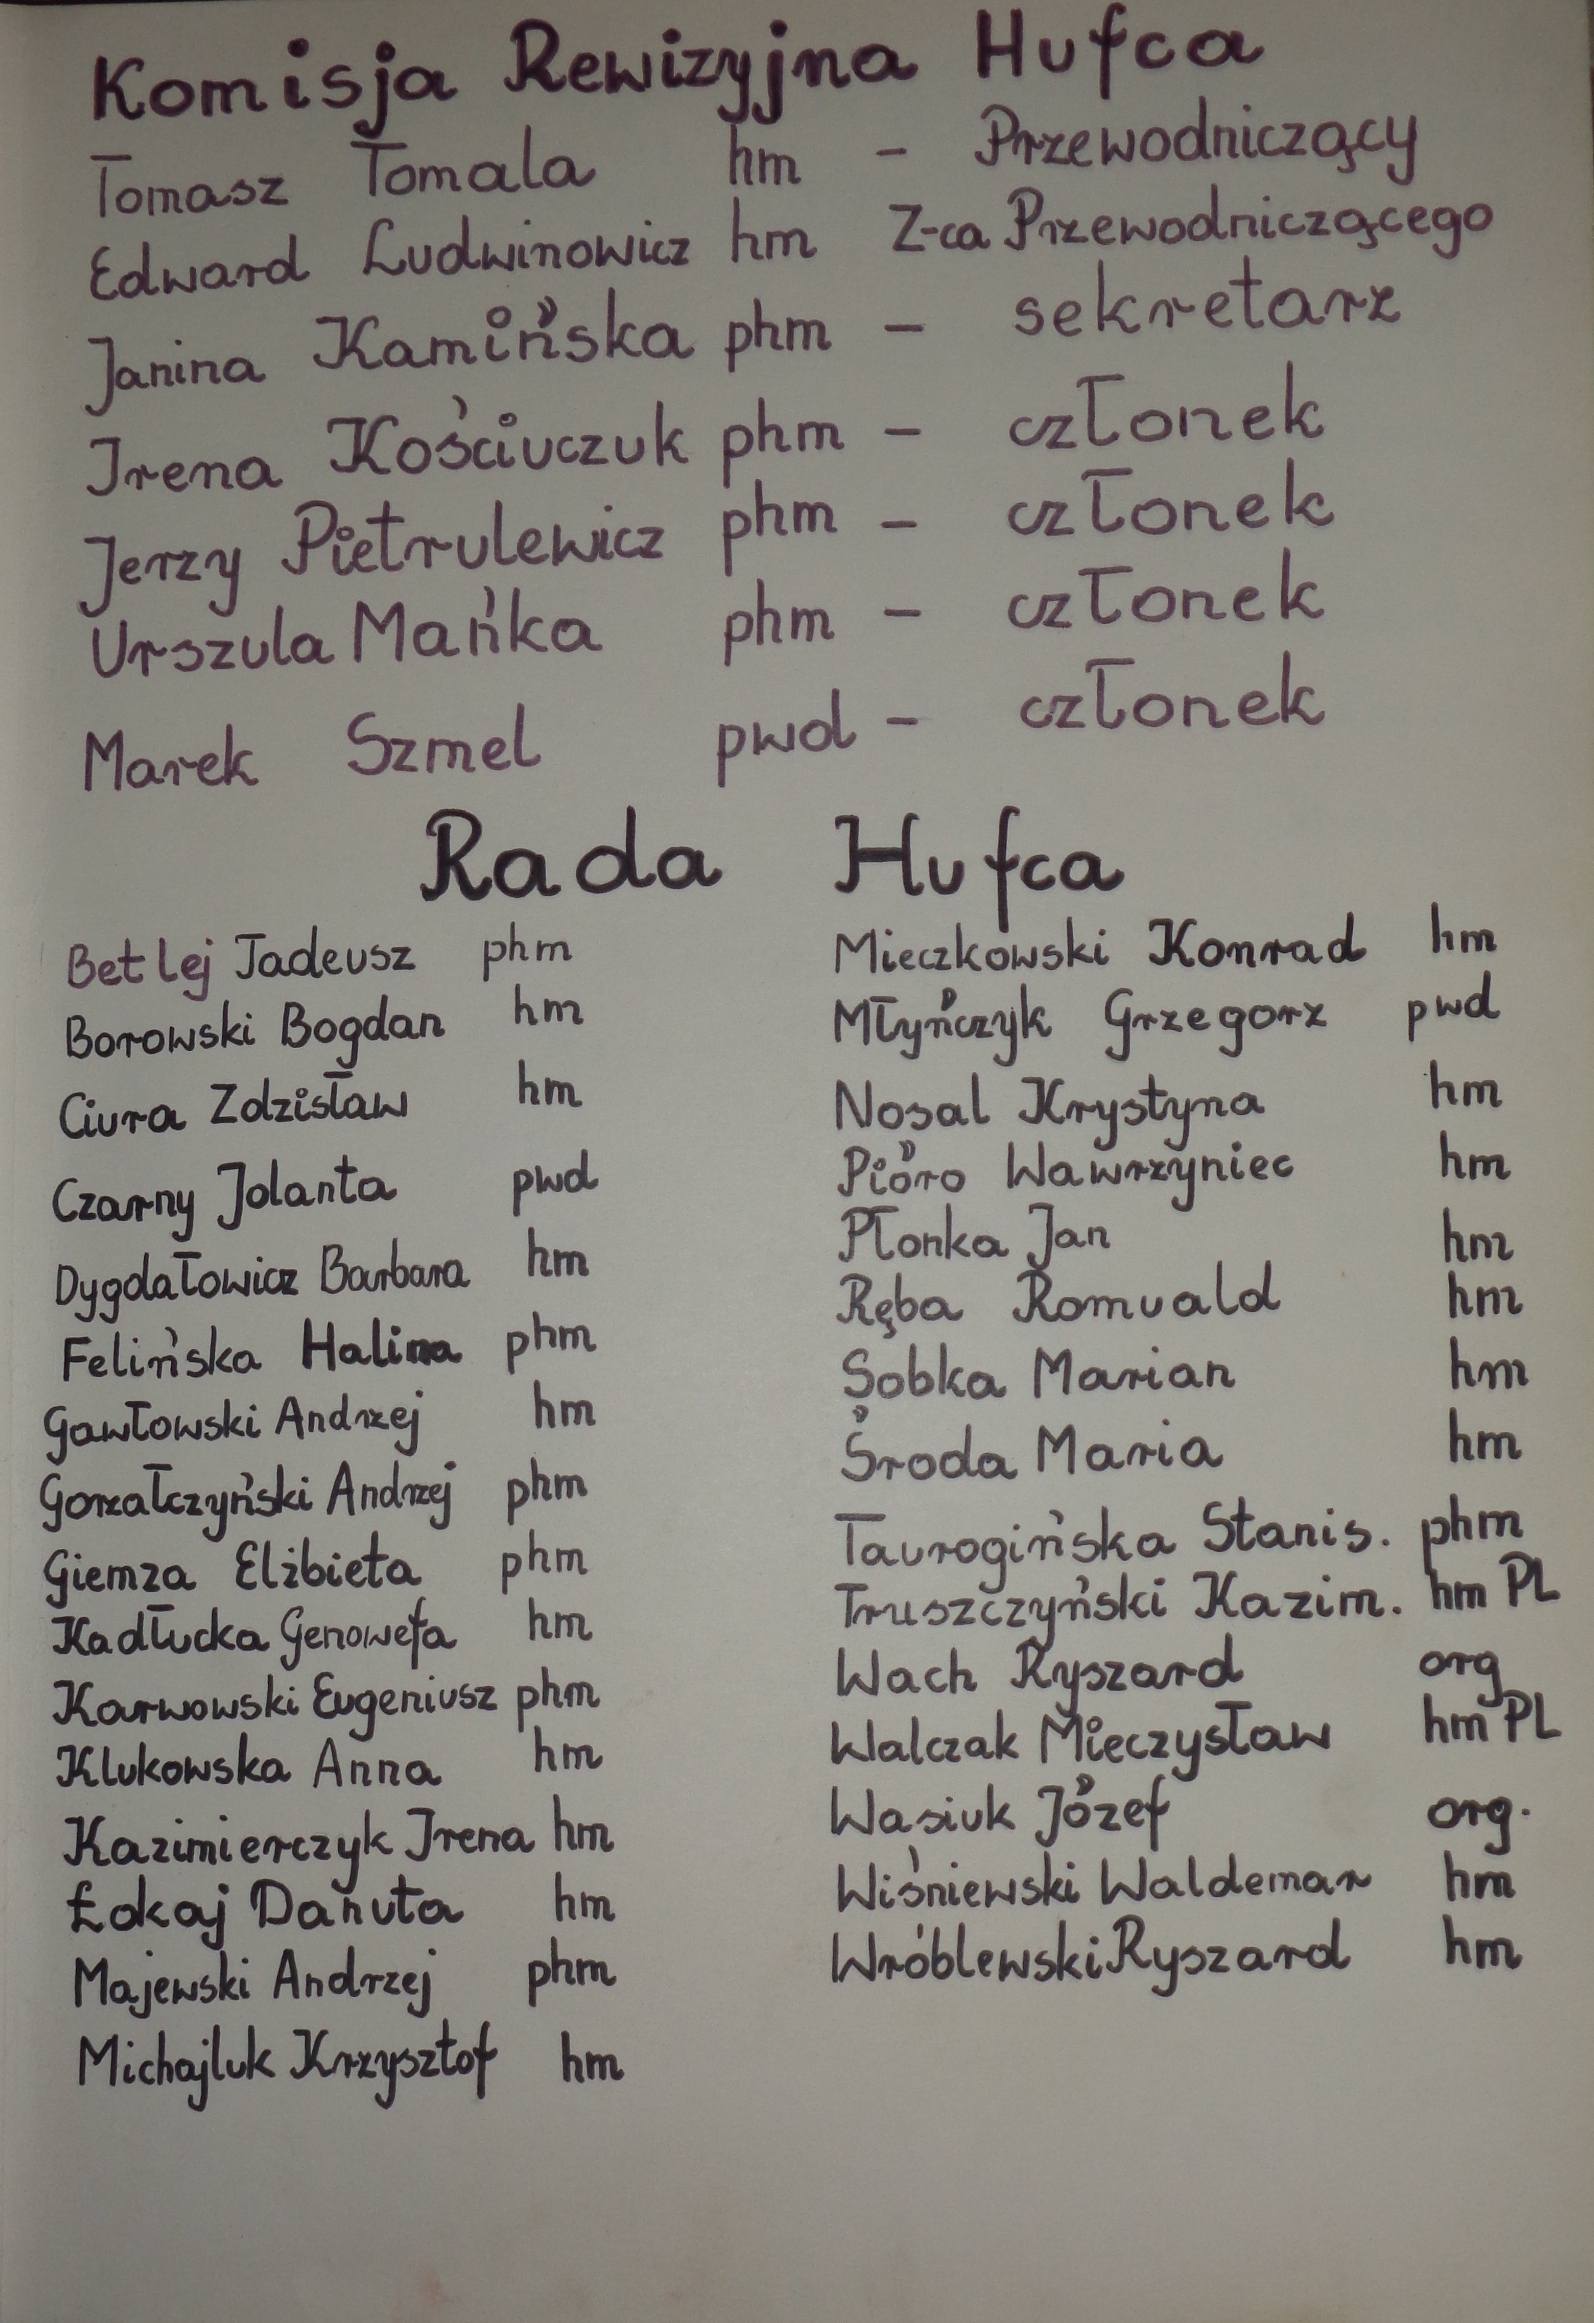 Komisja Rewizyjna Hufca
Tomasz Tomala hm - Przewodniczący
Edward Ludwinowicz hm Z-ca Przewodniczącego
Janina Kamińska phm - sekretarz
Irena Kościuczuk phm - członek
Jerzy Pietrulewicz phm - członek
Urszula Mańka phm - członek
Marek Szmel pwd - członek
Rada Hufca
Betlej Tadeusz phm
Borowski Bogdan hm
Ciura Zdzisław hm
Czarny Jolanta pwd
Dygdałowicz Barbara hm
Felińska Halina phm
Gawłowski Andrzej hm
Gorzałczyński Andrzej phm
Giemza Elżbieta phm
Kadłucka Genowefa hm
Karwowski Eugeniusz phm
Klukowska Anna hm
Kazimierczyk Irena hm
Łokaj Danuta hm
Majewski Andrzej phm
Michajluk Krzysztof hm
Mieczkowski Konrad hm
Młyńczyk Grzegorz pwd
Nosal Krystyna hm
Pióro Wawrzyniec hm
Płonka Jan hm
Ręba Romuald hm
Sobka Marian hm
Środa Maria hm
Taurogińska Stanis. phm
Truszczyński Kazim. hm PL
Wach Ryszard org
Walczak Mieczysław hm PL
Wasiuk Józef org.
Wiśniewski Waldemar hm
Wróblewski Ryszard hm